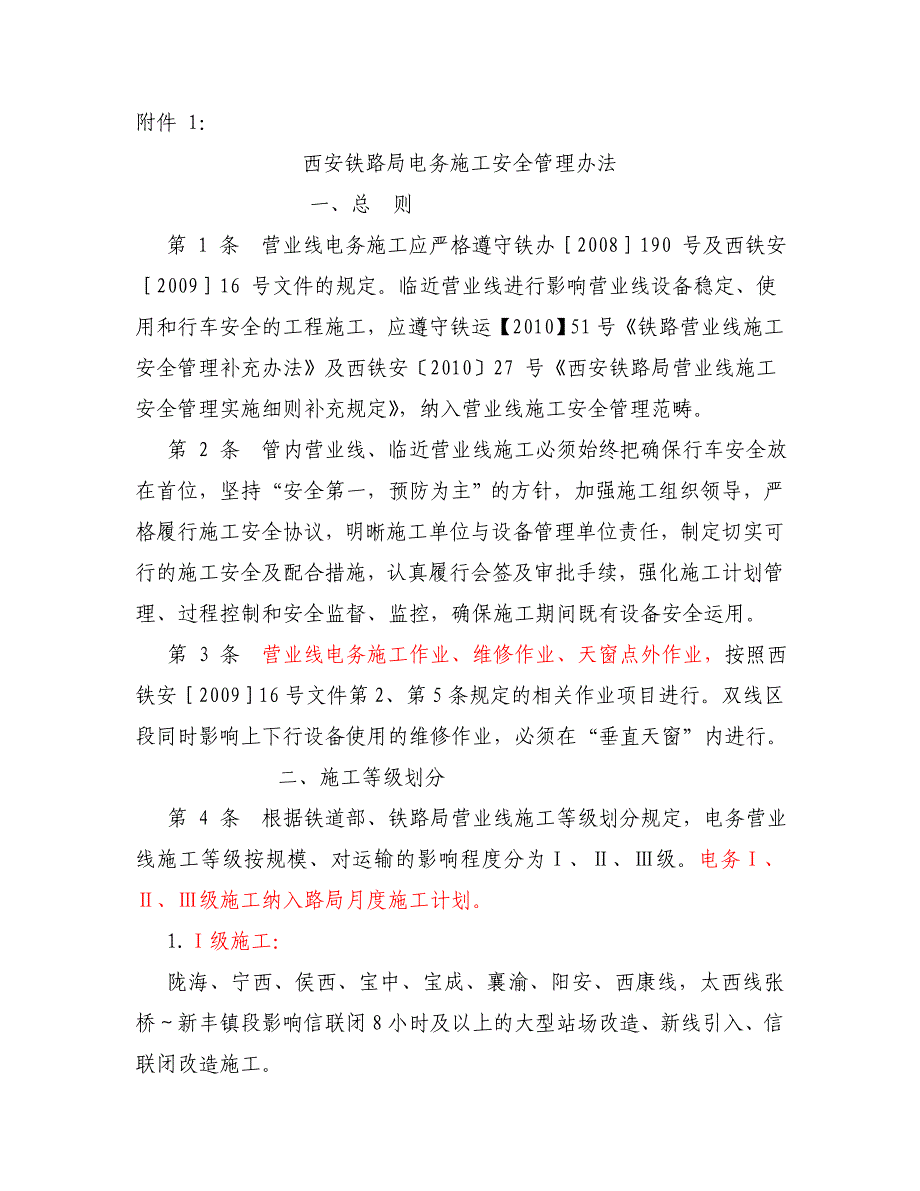 附件 1：
西安铁路局电务施工安全管理办法
一、总　则
第 1 条　营业线电务施工应严格遵守铁办［2008］190 号及西铁安
［2009］16 号文件的规定。临近营业线进行影响营业线设备稳定、使
用和行车安全的工程施工，应遵守铁运【2010】51号《铁路营业线施工
安全管理补充办法》及西铁安〔2010〕27 号《西安铁路局营业线施工
安全管理实施细则补充规定》，纳入营业线施工安全管理范畴。
第 2 条　管内营业线、临近营业线施工必须始终把确保行车安全放
在首位，坚持“安全第一，预防为主”的方针，加强施工组织领导，严
格履行施工安全协议，明晰施工单位与设备管理单位责任，制定切实可
行的施工安全及配合措施，认真履行会签及审批手续，强化施工计划管
理、过程控制和安全监督、监控，确保施工期间既有设备安全运用。
第 3 条　营业线电务施工作业、维修作业、天窗点外作业，按照西
铁安［2009］16号文件第2、第5条规定的相关作业项目进行。双线区
段同时影响上下行设备使用的维修作业，必须在“垂直天窗”内进行。
二、施工等级划分
第 4 条　根据铁道部、铁路局营业线施工等级划分规定，电务营业
线施工等级按规模、对运输的影响程度分为Ⅰ、Ⅱ、Ⅲ级。电务Ⅰ、
Ⅱ、Ⅲ级施工纳入路局月度施工计划。
1.Ⅰ级施工：
陇海、宁西、侯西、宝中、宝成、襄渝、阳安、西康线，太西线张
桥～新丰镇段影响信联闭8小时及以上的大型站场改造、新线引入、信
联闭改造施工。